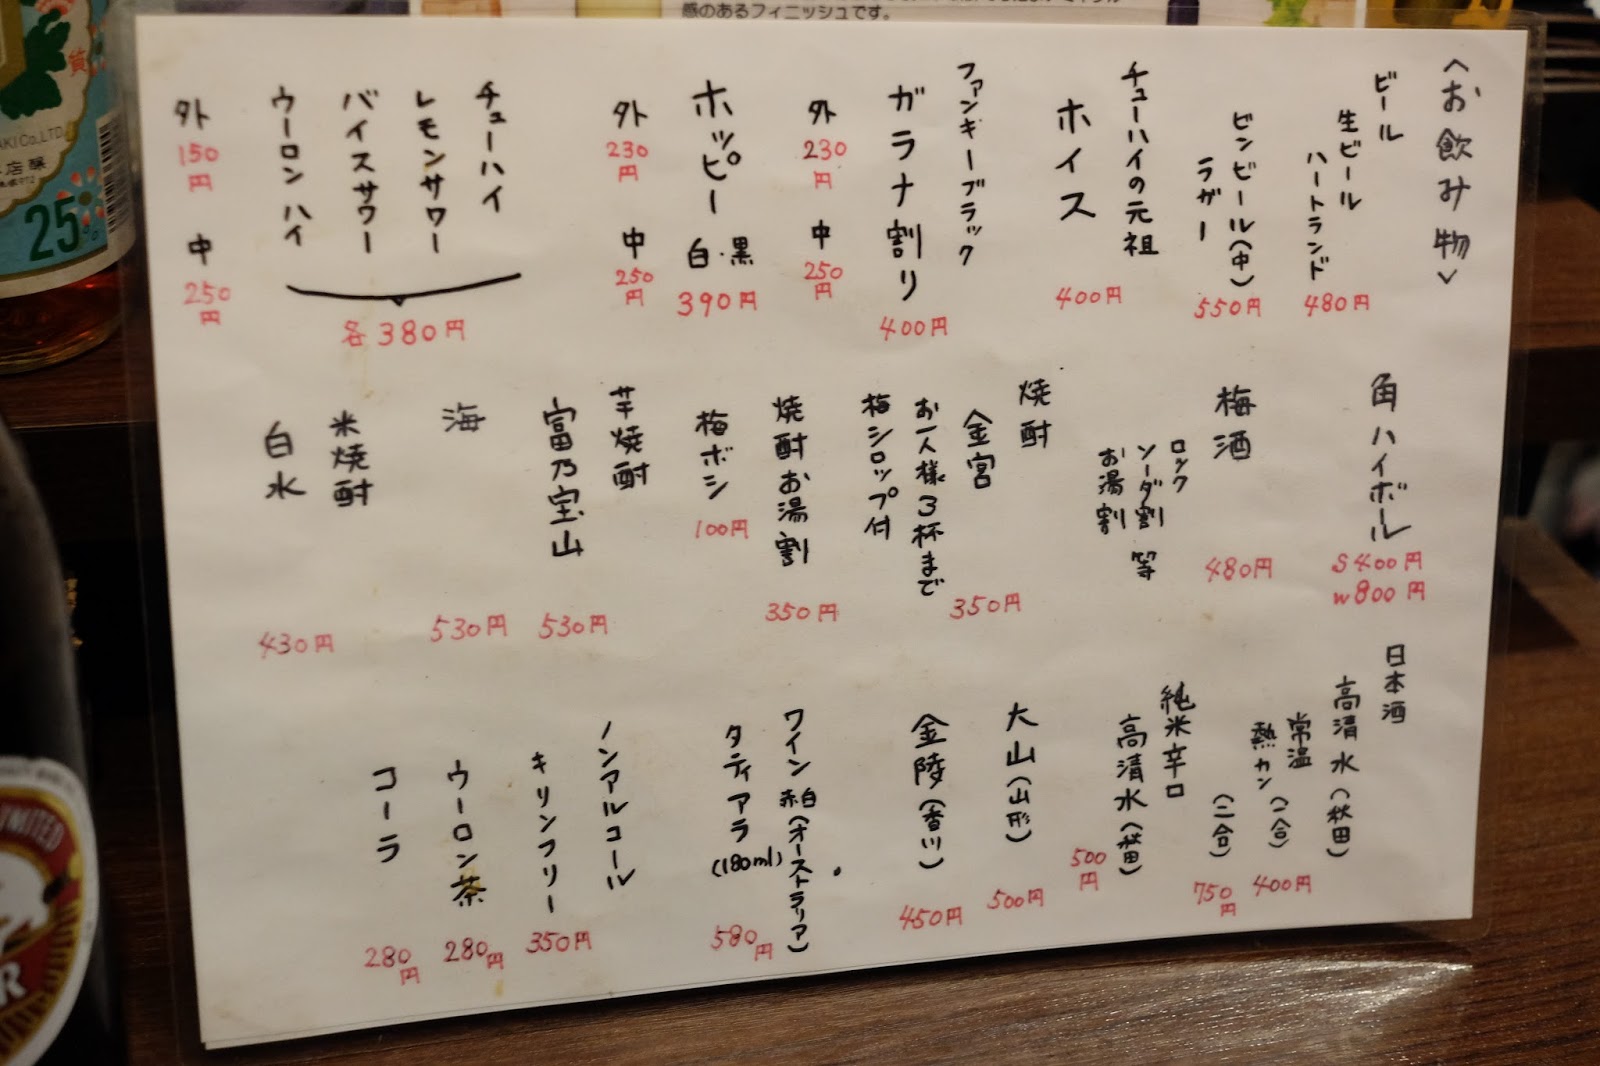 感のあるフィニッシュです。
<お飲み物>
ビール
生ビール
ハートランド
480円
ビンビール(中)
ラガー
550円
チューハイの元祖
ホイス
400円
ファンキーブラック
ガラナ割り
400円
外 230円 中 250円
ホッピー 白・黒
390円
外 230円 中 250円
チューハイ
レモンサワー
バイスサワー
ウーロンハイ
各380円
外 150円 中 250円
角ハイボール
S400円
W800円
梅酒
480円
ロック
ソーダ割 等
お湯割
焼酎
金宮
350円
お一人様3杯まで
梅シロップ付
焼酎お湯割
350円
梅ボシ
100円
芋焼酎
富乃宝山
530円
海
530円
米焼酎
白水
430円
日本酒
高清水(秋田)
常温
熱カン(一合)
400円
(二合)
750円
純米辛口
高清水(秋田)
500円
大山(山形)
500円
金陵(香川)
450円
ワイン 赤白(オーストラリア)
タティアラ(180ml)
580円
ノンアルコール
キリンフリー
350円
ウーロン茶
280円
コーラ
280円
AKI Co.,LTD.
店醸
25
UNITED